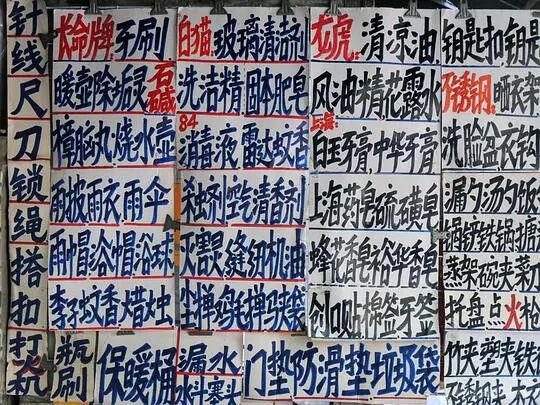 针 线 尺 刀 锁 绳 搭 扣 打
长命牌:牙刷
暖壶除垢灵 石碱
樟脑丸烧水壶
雨披雨衣雨伞
雨帽浴帽浴球
蚊香蜡烛
瓶刷
白猫:玻璃清洁剂
洗洁精固体肥皂
84消毒液雷达蚊香
杀虫剂空气清香剂
灭害灵缝纫机油
尘掸鸡毛掸马夹袋
保暖桶
漏水
水斗塞头
龙虎:清凉油
风油精花露水
上海:
白玉牙膏,中华牙膏
上海药皂硫磺皂
蜂花香皂裕华香皂
创口贴棉签牙签
门垫防滑垫垃圾袋
钥匙扣钥匙
不锈钢:晒衣架
洗脸盆衣钩
漏勺汤勺饭
锅铲铁锅搪
蒸架碗夹菜刀
托盘点火枪
竹夹塑夹铁
不锈钢夹木衣